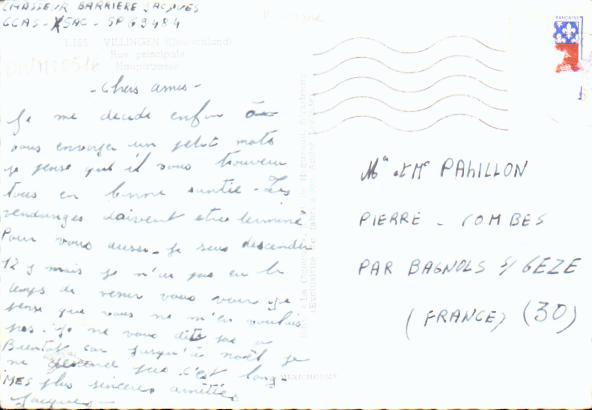 CHASSEUR BARRIERE JACQUES
CCAS - SAC - SP 69484
VILLINGEN
Rue principale
- Chers amis -
Je me decide enfin à
vous envoyer un petit mots
je pense qu'il vous trouveru
tous en bonne santie - Les
vendanges doivent etre terminé
Pour vous aussi. Je suis descendu
12 j mais je n'ai pas eu le
temps de venir vous voir. Je
pense que vous ne m'en voulais
pas. Je ne vous dits pas a
Bientot car jusqu'à noël je
ne descend pas c'est long
MES plus sinceres amitiés
Jacques
Mr et Me PAHILLON
PIERRE - COMBES
PAR BAGNOLS S/ CEZE
(FRANCE) (30)